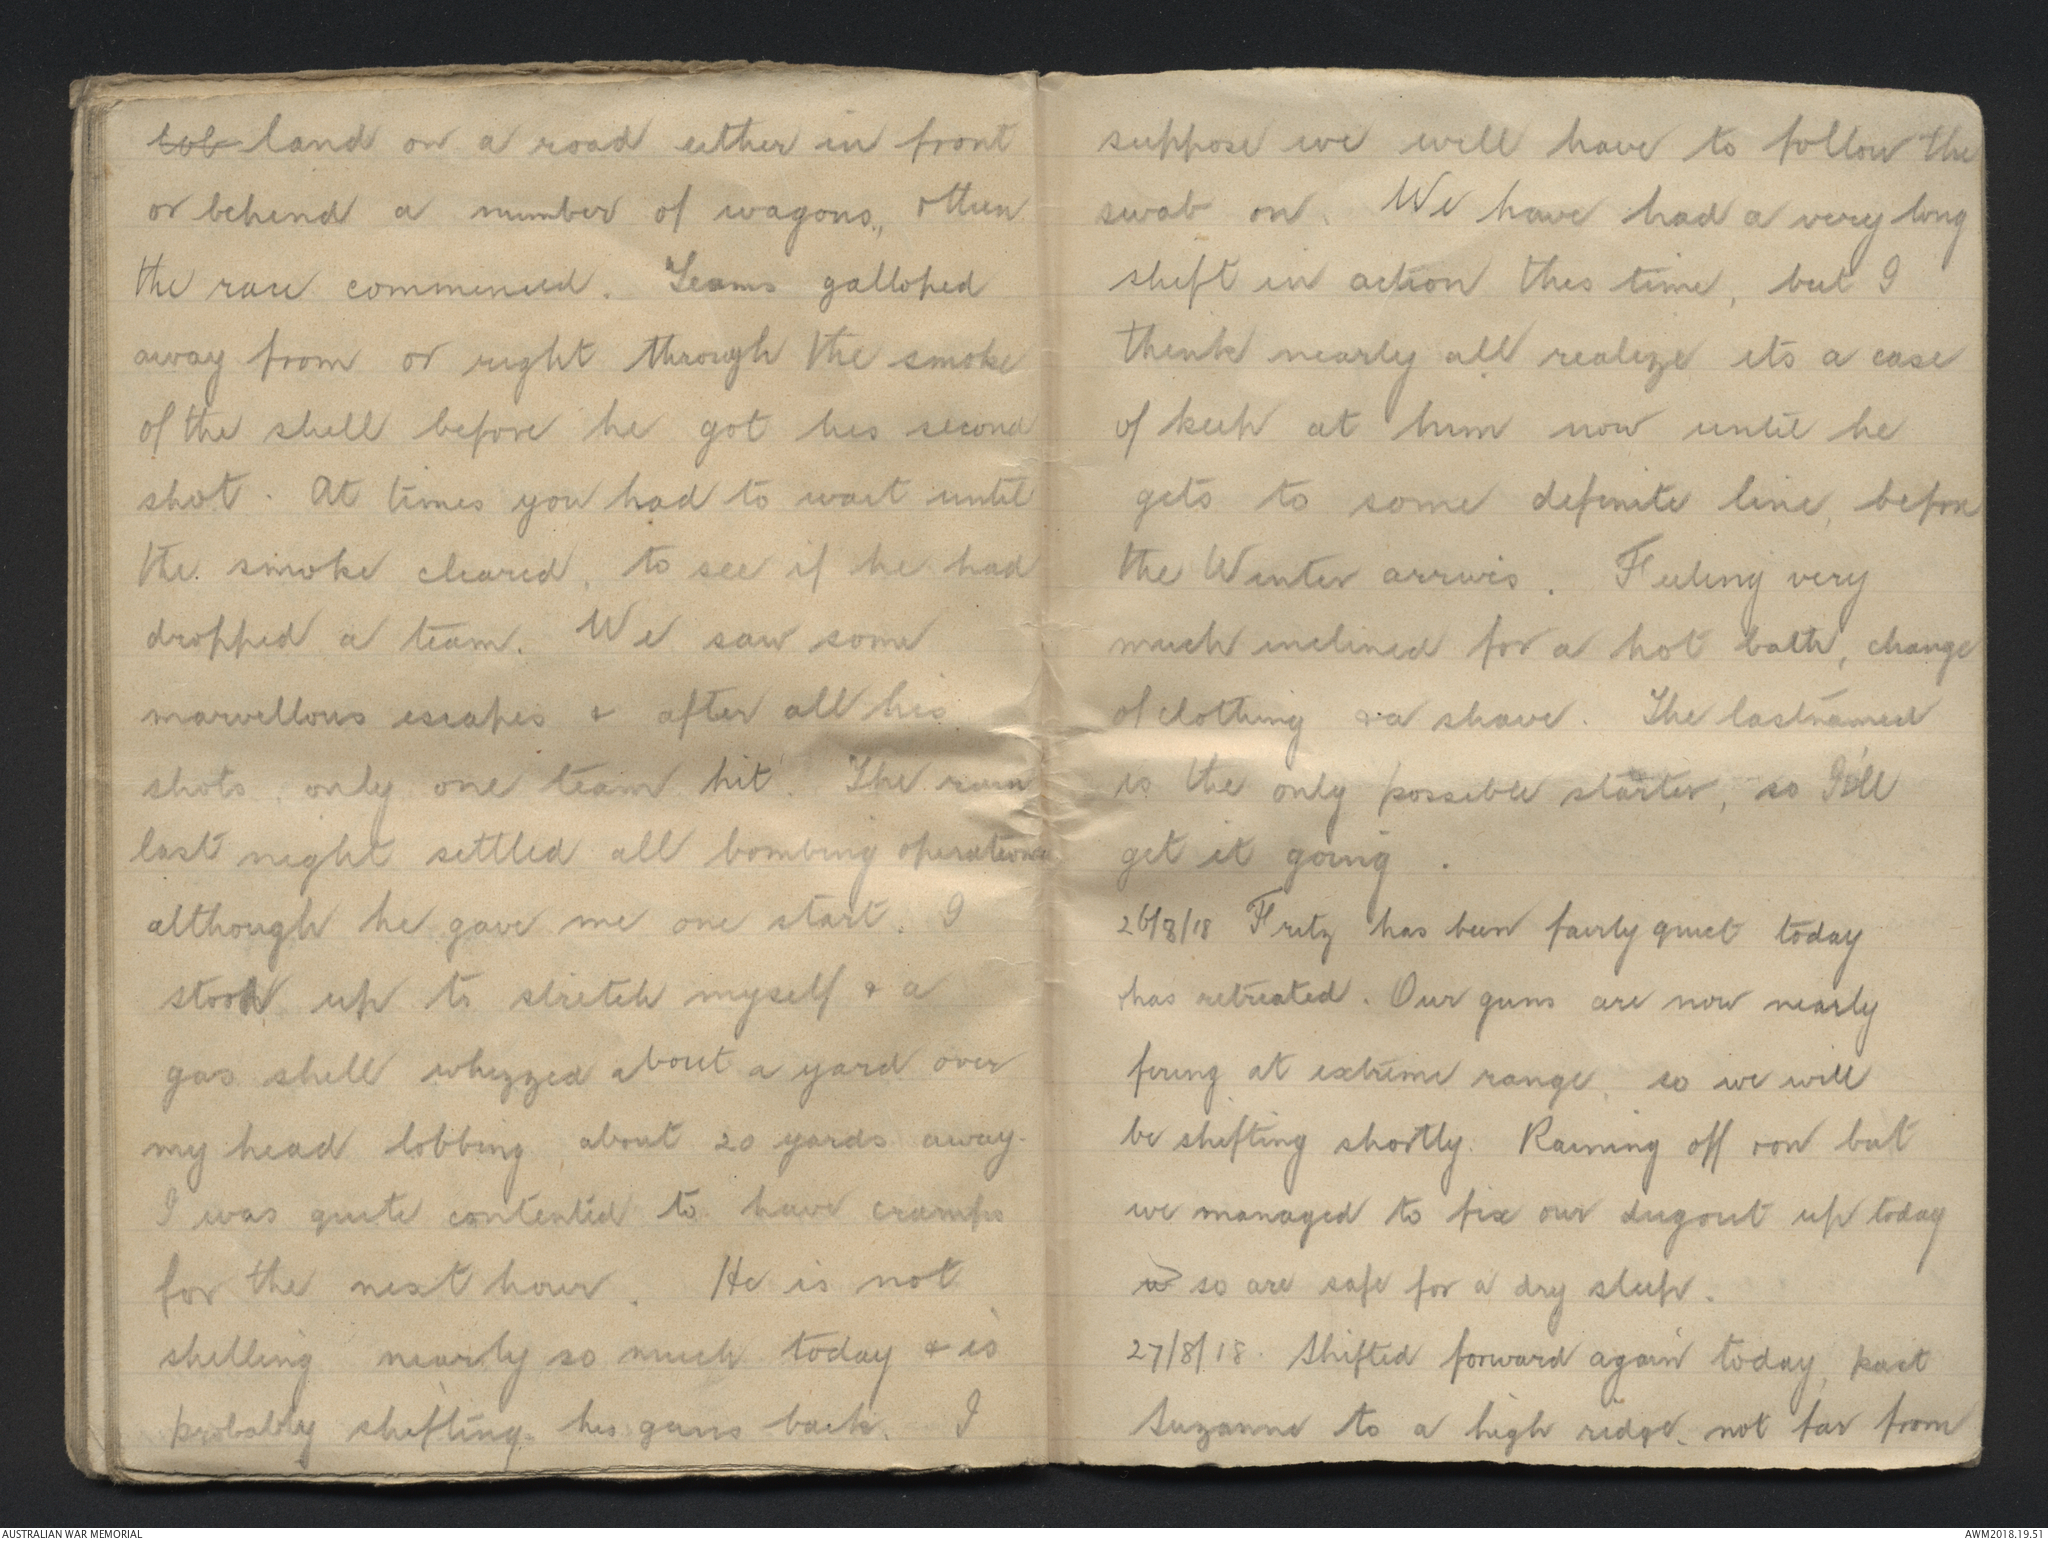 lob land on a road either in front
or behind a number of wagons, & then
the race commenced. Teams galloped
away from or right through the smoke
of the shell before he got his second
shot. At times you had to wait until
the smoke cleared, to see if he had
dropped a team. We saw some
marvellous escapes & after all his
shots only one team hit. The rain
last night settled all bombing operations
although he gave me one start. I
stood up to stretch myself & a
gas shell whizzed about a yard over
my head lobbing about 20 yards away.
I was quite contented to have cramps
for the next hour. He is not
shelling nearly so much today & is
probably shifting his guns back. I
suppose we will have to follow the
swab on. We have had a very long
shift in action this time, but I
think nearly all realize its a case
of keep at him now until he
gets to some definite line, before
the Winter arrives. Feeling very
much inclined for a hot bath, change
of clothing & a shave. The lastnamed
is the only possible starter, so I'll
get it going.
26/8/18 Fritz has been fairly quiet today
& has retreated. Our guns are now nearly
firing at extreme range, so we will
be shifting shortly. Raining off & on but
we managed to fix our dugout up today
so are safe for a dry sleep.
27/8/18. Shifted forward again today, past
Suzanne to a high ridge, not far from
AUSTRALIAN WAR MEMORIAL
AWM2018.19.51